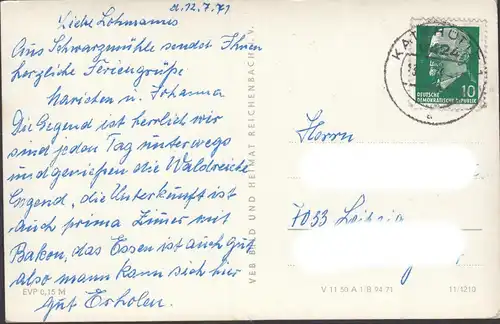 d. 12.7.71
Liebe Lohmanns
Aus Schwarzmühle sendet Ihnen
herzliche Feriengrüße
u. Johanna
Die Gegend ist herrlich wir
sind jeden Tag unterwegs
und genießen die Waldreiche
Gegend, die Unterkünft ist
auch prima Zimer mit
Balkon, das Essen ist auch gut
also mann kann sich hir
gut Erholen.
EVP 0,15 M
VEB BILD UND HEIMAT REICHENBACH i. V.
KATZHÜTTE
a
DEUTSCHE
DEMOKRATISCHE REPUBLIK
10
Herrn
7033 Leipzig
V 11 50 A 1/B 94 71
11/1210